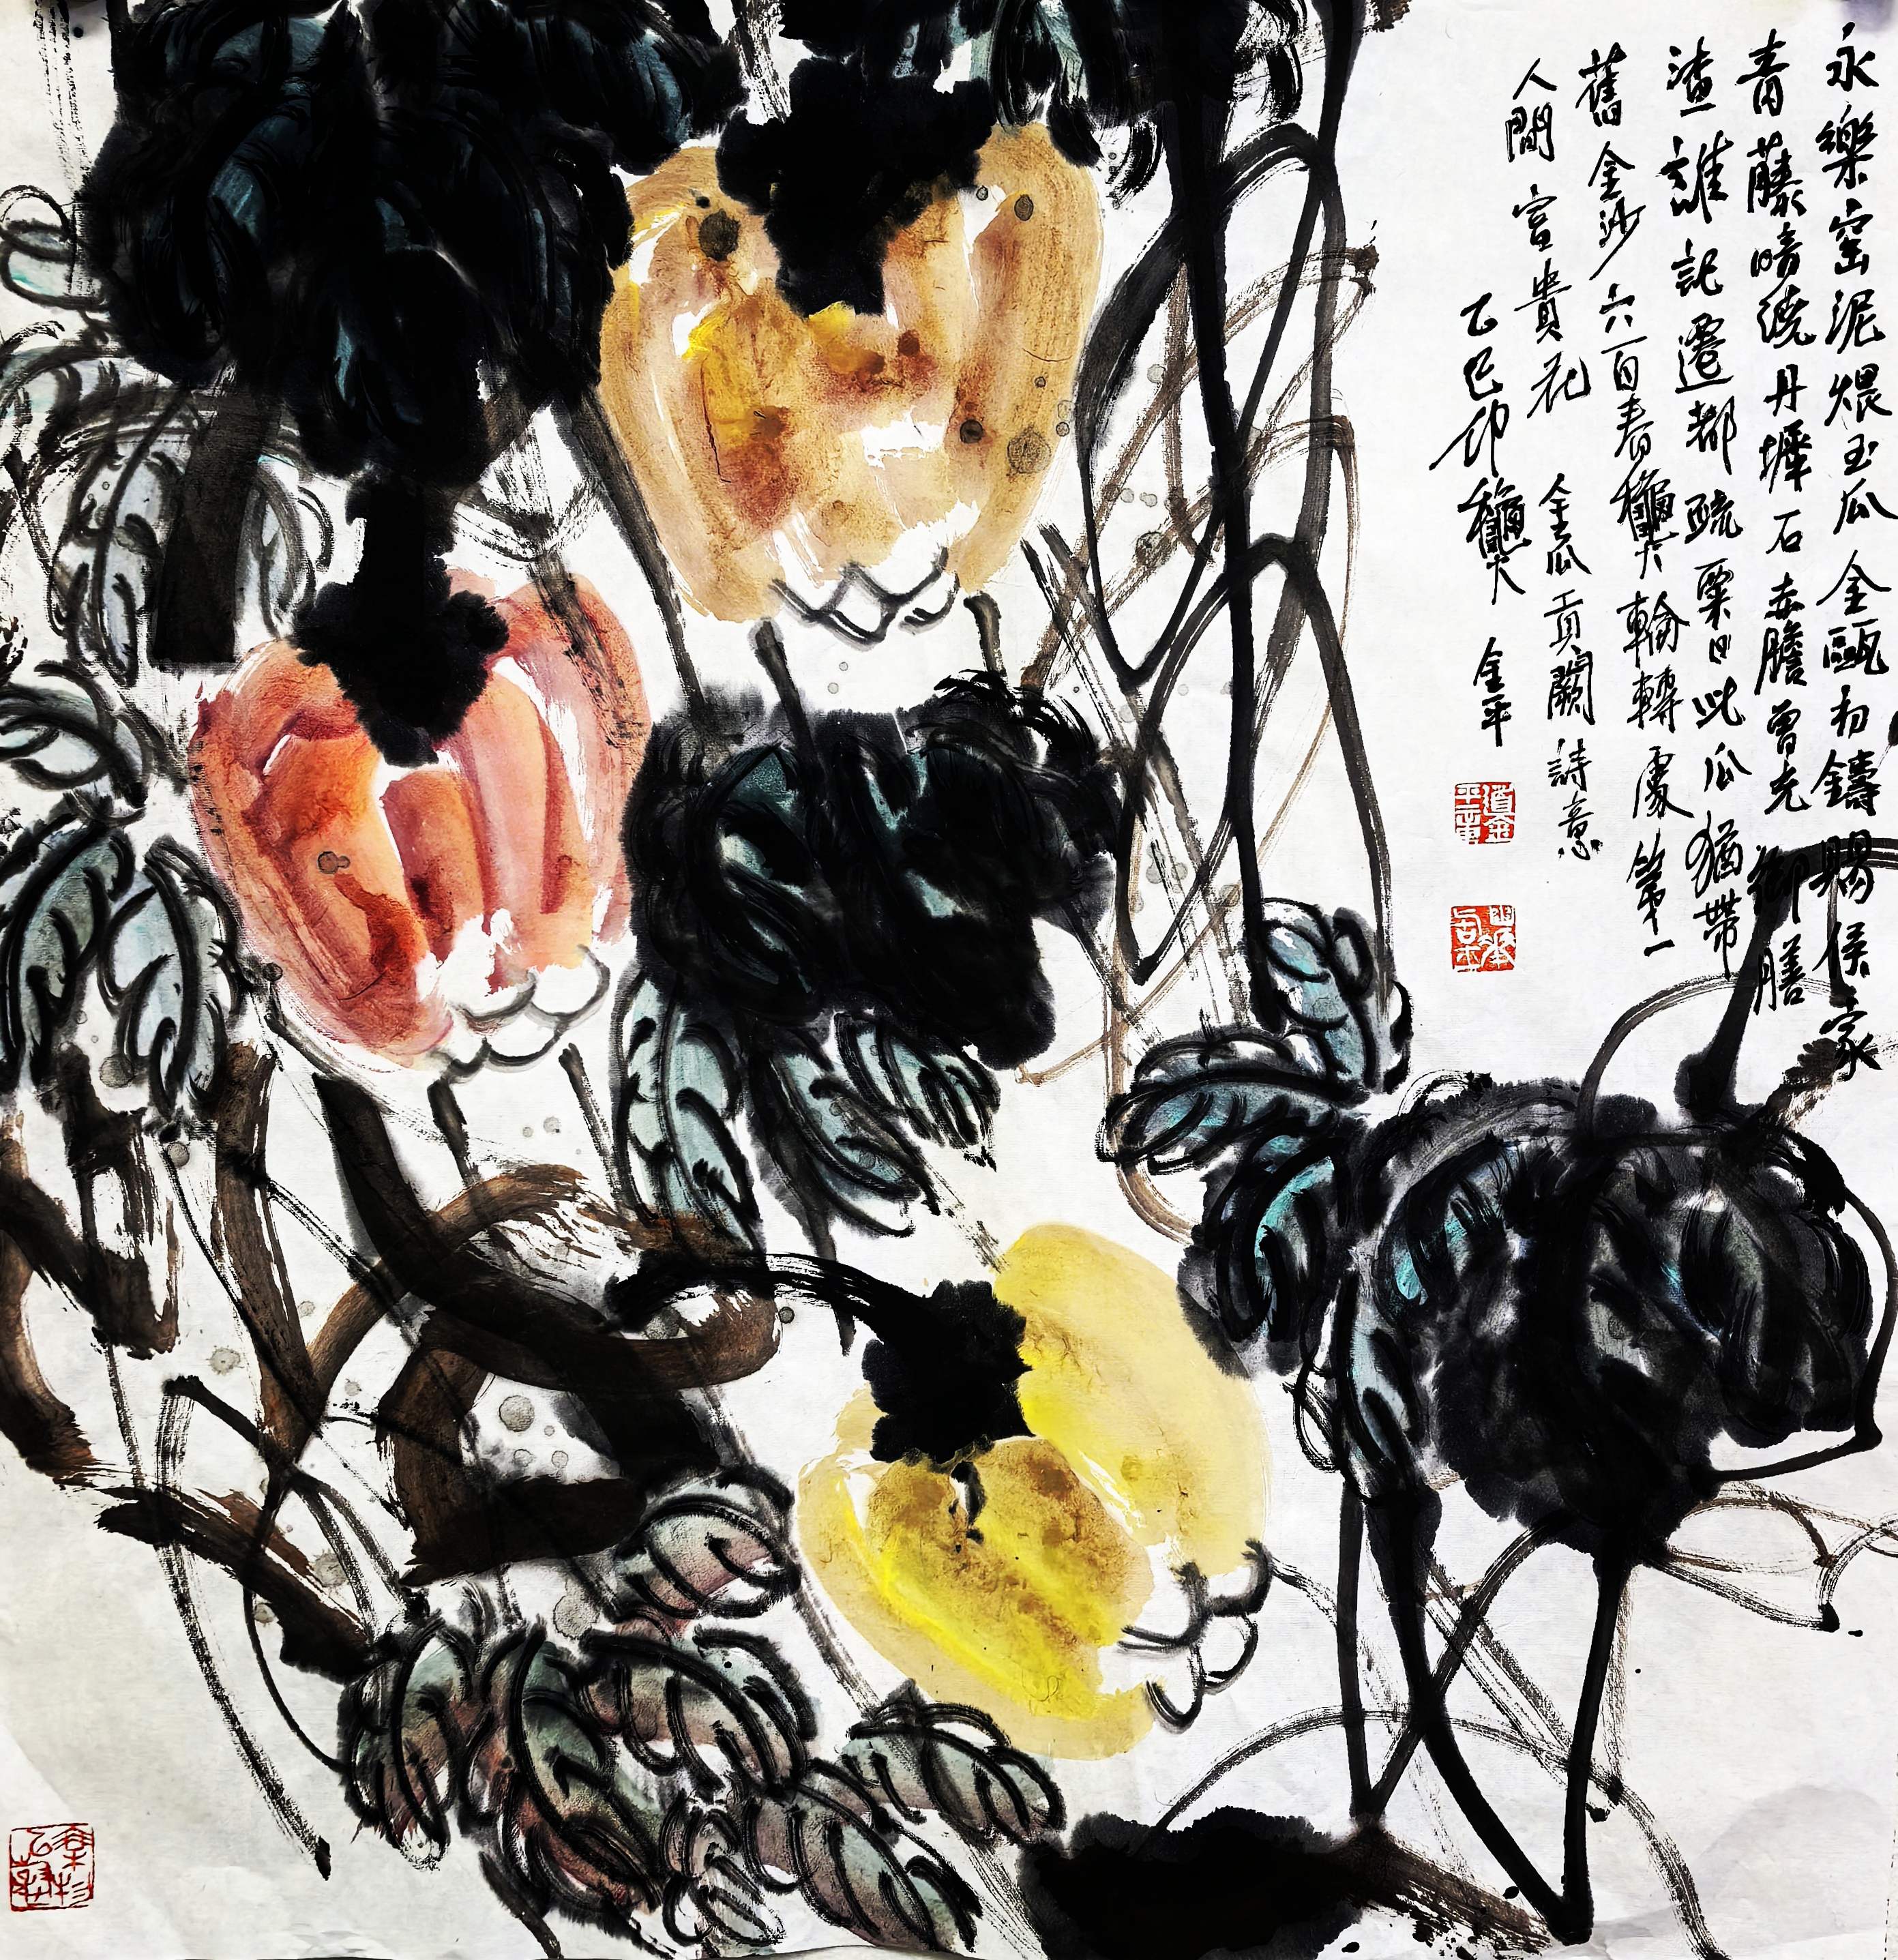 永樂窑泥煨玉瓜金甌初鑄賜侯家
青藤晴繞丹墀石赤膽曾充御膳
渣誰記遷都疏粟日此瓜猶帶
舊金沙六百春龝輪轉處第一
人間富貴花 金瓜貢闕詩意
乙巳龝 金平